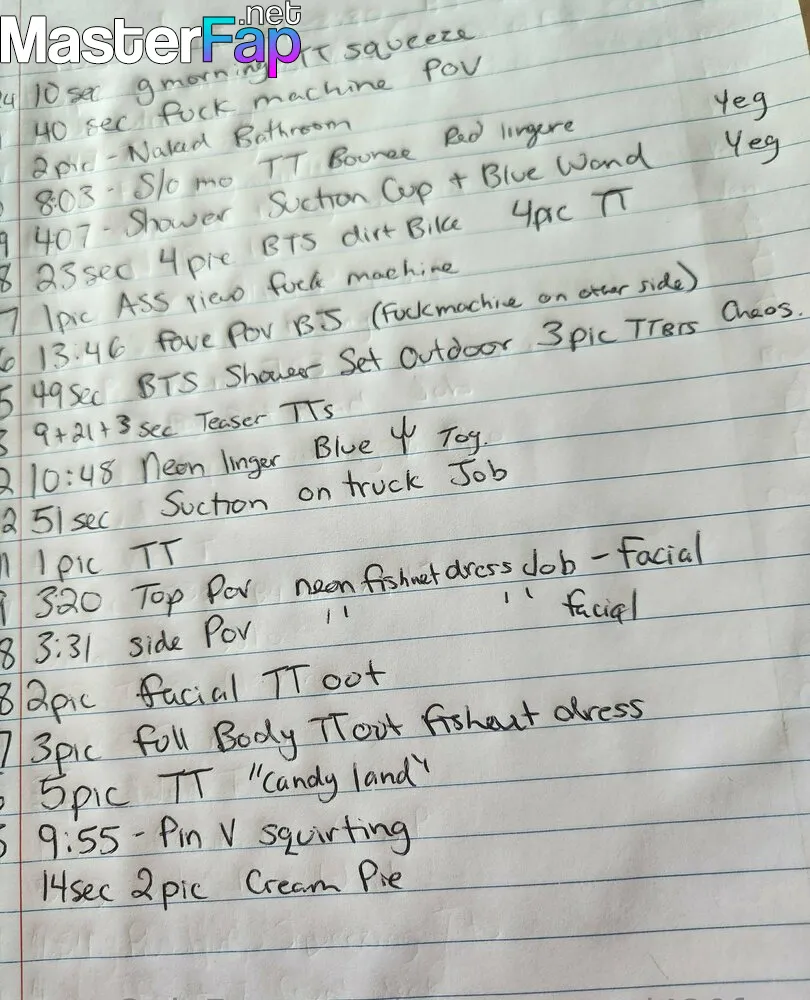 MasterFap
.net
24 10 sec gmorning TT squeeze
40 sec fuck machine POV
2pic - Naked Bathroom
8:03 - S/o mo TT Bounce Red lingere Yeg
407 - Shower Suction Cup + Blue Wand Yeg
23sec 4pic BTS dirt Bike 4pic TT
1pic ASS view fuck machine
13:46 fave POV BJ (Fuckmachine on other side)
49sec BTS Shower Set Outdoor 3pic TTBTS Chaos.
9+21+3 sec Teaser TTs
10:48 Neon linger Blue Toy.
51 sec Suction on truck Job
1pic TT
320 Top Pov neon fishnet dress Job - facial
3:31 side Pov " " facial
2pic facial TT oot
3pic full Body TT out fishnet dress
5pic TT "Candy land"
9:55 - Pin V squirting
14sec 2pic Cream Pie